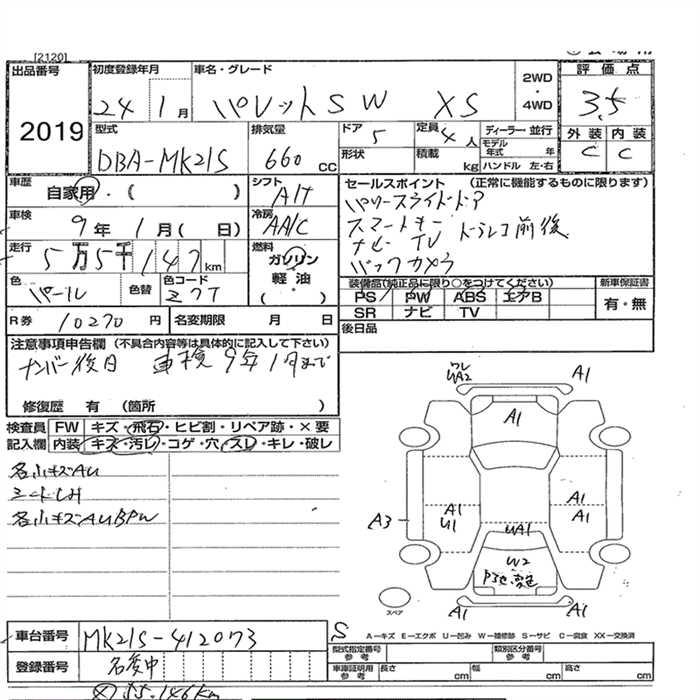 [2120]
出品番号 初度登録年月 車名・グレード 2WD・4WD 評価点
24 1月 パレットSW XS 3.5
2019
型式 排気量 ドア 定員 ディーラー 並行 外装 内装
DBA-MK21S 660cc 5 4人 モデル年式 年 C C
形状 積載 kg ハンドル 左・右
車歴 自家用・( ) シフト A/T
セールスポイント (正常に機能するものに限ります)
パワースライドドア
スマートキー
ナビ TV ドラレコ前後
バックカメラ
車検 9年 1月( 日) 冷房 AA/C
走行 5万5千147km 燃料 ガソリン 軽油 ( )
色 パール 色替 色コード Z7T
装備品(純正品に限り○をつけてください) 新車保証書
PS PW ABS エアB 有・無
SR ナビ TV
R券 10270円 名変期限 月 日
後日品
注意事項申告欄 (不具合内容等は具体的に記入して下さい)
ナンバー後日 車検9年1月まで
修復歴 有 (箇所 )
検査員 FW キズ・飛石・ヒビ割・リペア跡・×要
記入欄 内装 キズ・汚レ・コゲ・穴・スレ・キレ・破レ
各小キズAU
シートLH
各小キズAUBPW
ワレ
UA2 A1
A1
A1 A1
A3 U1 A1
UA1
W2
A1 A1
スペア
S A-キズ E-エクボ U-凹み W-補修跡 S-サビ C-腐食 XX-交換済
車台番号 MK21S-412073
型式指定番号 参考 類別区分番号 参考
登録番号 名変中
車庫証明用 参考 長さ cm 幅 cm 高さ cm
55.146km